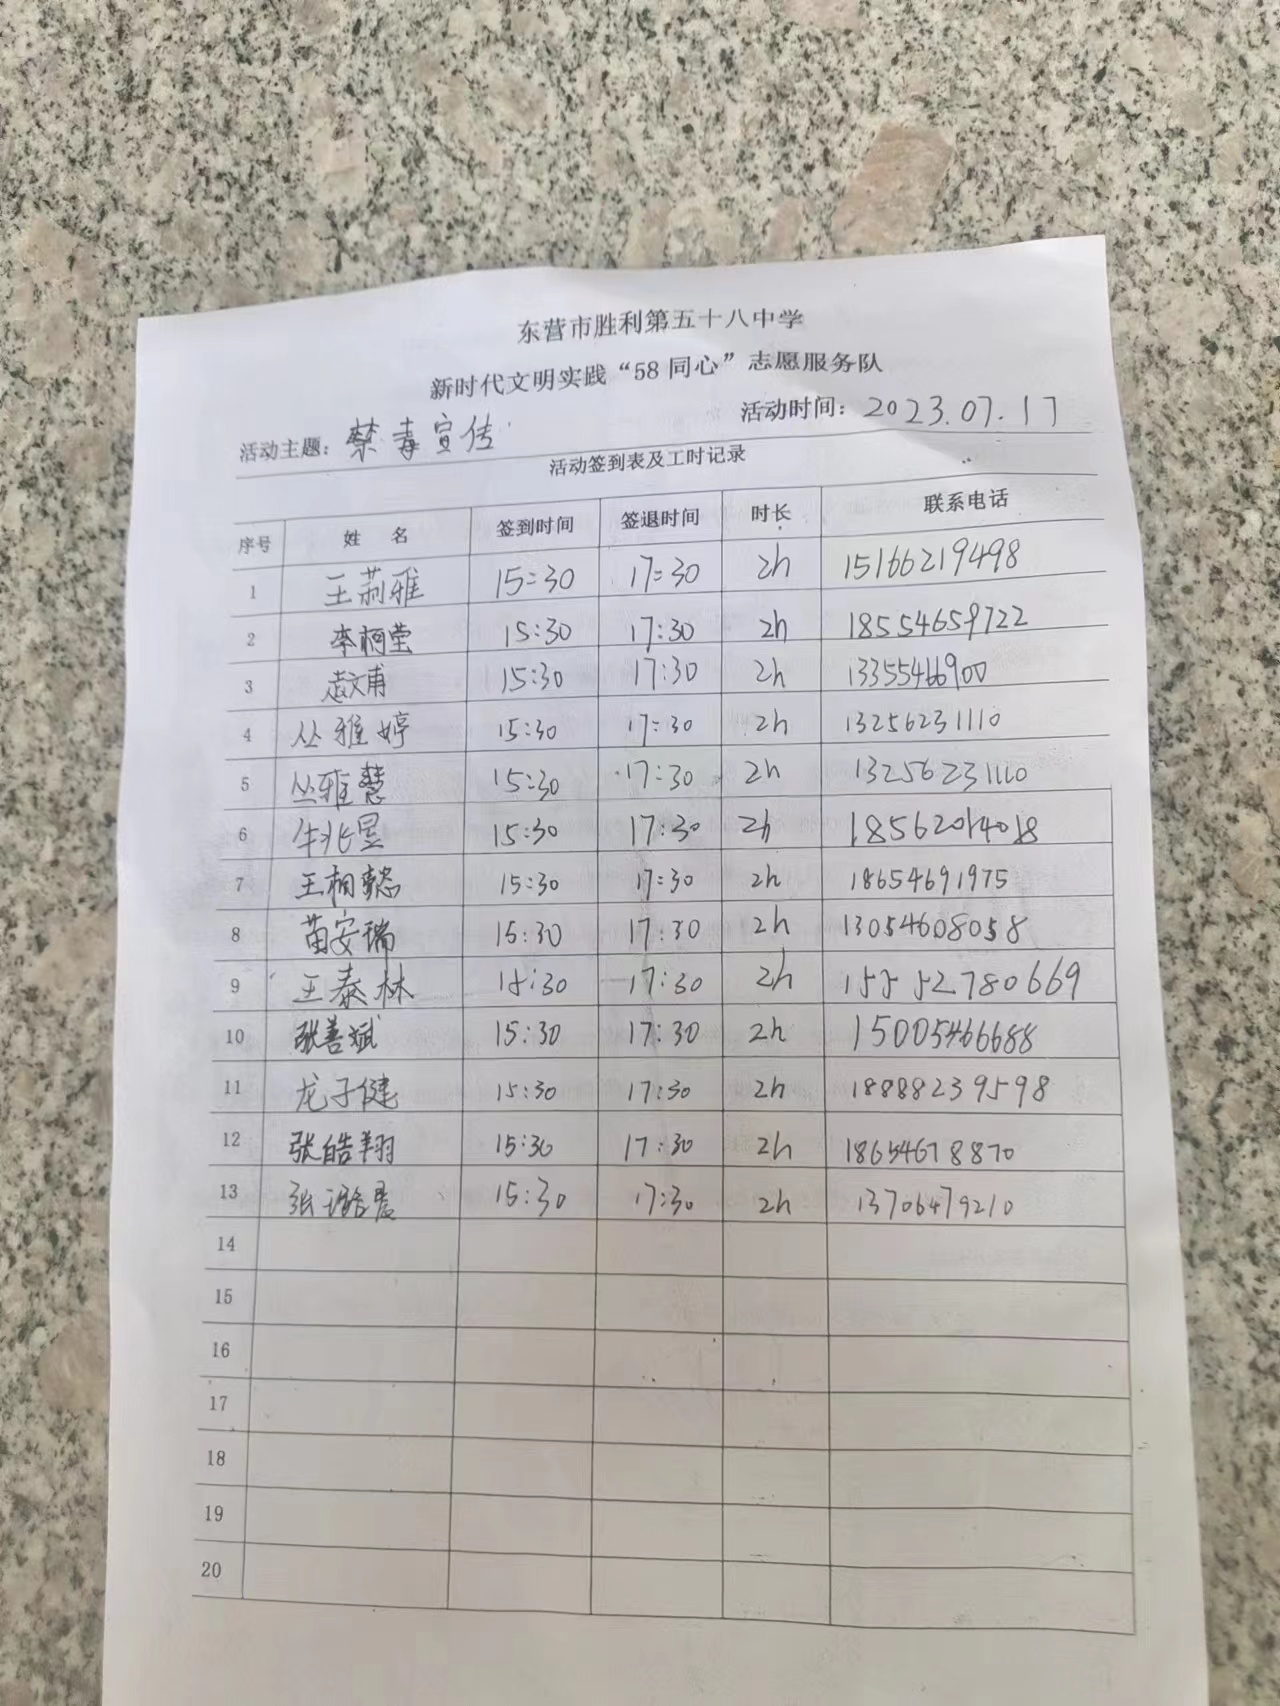 东营市胜利第五十八中学
新时代文明实践“58 同心”志愿服务队
活动主题：禁毒宣传 活动时间：2023.07.17
活动签到表及工时记录
序号 姓 名 签到时间 签退时间 时长 联系电话
1 王莉雅 15:30 17:30 2h 15166219498
2 李柯莹 15:30 17:30 2h 18554659722
3 15:30 17:30 2h 13355466900
4 丛雅婷 15:30 17:30 2h 13256231110
5 丛雅慧 15:30 17:30 2h 13256231110
6 牛兆昱 15:30 17:30 2h 18562014018
7 王桐懿 15:30 17:30 2h 18654691975
8 苗安瑞 15:30 17:30 2h 13054608058
9 王泰林 15:30 17:30 2h 15552780669
10 张善斌 15:30 17:30 2h 15005466688
11 龙子健 15:30 17:30 2h 18888239598
12 张皓翔 15:30 17:30 2h 18654678870
13 15:30 17:30 2h 13706479210
14
15
16
17
18
19
20